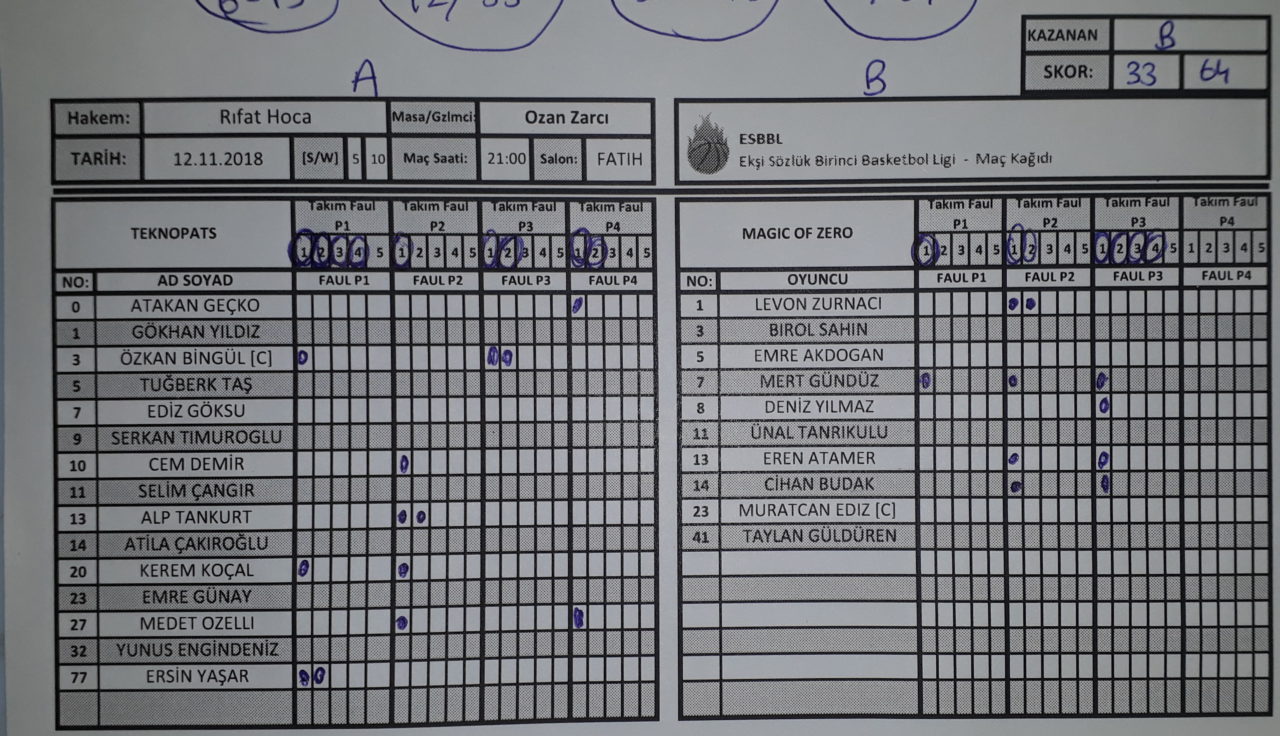 KAZANAN B
SKOR: 33 64
A
B
Hakem: Rıfat Hoca Masa/Gzlmci: Ozan Zarcı
TARİH: 12.11.2018 [S/W] 5 10 Maç Saati: 21:00 Salon: FATIH
ESBBL
Ekşi Sözlük Birinci Basketbol Ligi - Maç Kağıdı
TEKNOPATS
Takım Faul P1 Takım Faul P2 Takım Faul P3 Takım Faul P4
1 2 3 4 5 1 2 3 4 5 1 2 3 4 5 1 2 3 4 5
NO: AD SOYAD FAUL P1 FAUL P2 FAUL P3 FAUL P4
0 ATAKAN GEÇKO
1 GÖKHAN YILDIZ
3 ÖZKAN BİNGÜL [C]
5 TUĞBERK TAŞ
7 EDİZ GÖKSU
9 SERKAN TIMUROGLU
10 CEM DEMİR
11 SELİM ÇANGIR
13 ALP TANKURT
14 ATİLA ÇAKIROĞLU
20 KEREM KOÇAL
23 EMRE GÜNAY
27 MEDET OZELLI
32 YUNUS ENGİNDENİZ
77 ERSİN YAŞAR
MAGIC OF ZERO
Takım Faul P1 Takım Faul P2 Takım Faul P3 Takım Faul P4
1 2 3 4 5 1 2 3 4 5 1 2 3 4 5 1 2 3 4 5
NO: OYUNCU FAUL P1 FAUL P2 FAUL P3 FAUL P4
1 LEVON ZURNACI
3 BIROL SAHIN
5 EMRE AKDOGAN
7 MERT GÜNDÜZ
8 DENİZ YILMAZ
11 ÜNAL TANRIKULU
13 EREN ATAMER
14 CİHAN BUDAK
23 MURATCAN EDIZ [C]
41 TAYLAN GÜLDÜREN